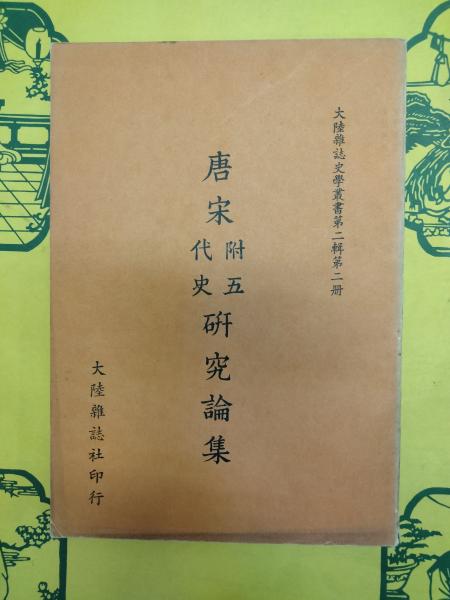 大陸雜誌史學叢書第二輯第二册
唐宋附五代史硏究論集
大陸雜誌社印行